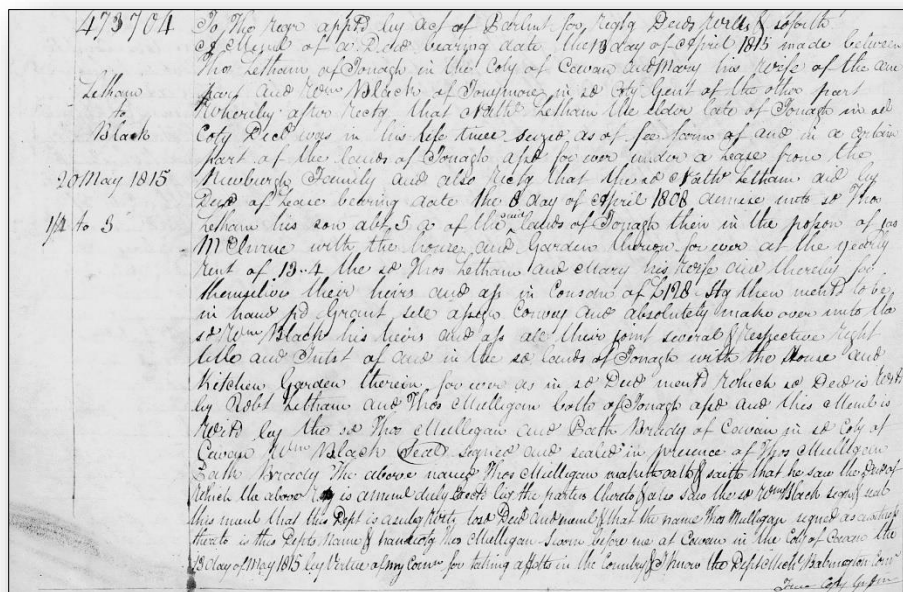 473704
Letham
to
Black
20 May 1815
1/4 to 3
To The Regr appd by Act of Parlmt for Regtg Deeds Wills & soforth
A Meml of a Deed bearing date the 13 day of April 1815 made between
Thos Letham of Tonagh in the Coty of Cavan and Mary his Wife of the one
part and Wm Black of in sd Coty Gent of the other part
Whereby after Rectg that Nathl Letham the elder late of Tonagh in sd
Coty Decd was in his life time seized as of fee farm of and in a certain
part of the lands of Tonagh afsd for ever under a Lease from the
Newburgh Family and also Rectg that the sd Nathl Letham did by
Deed of Lease bearing date the 8 day of April 1808 demise unto sd Thos
Letham his son abt 5 a of the said lands of Tonagh then in the posson of Jas
McClurue with the house and Garden thereon for ever at the yearly
rent of 13-4 the sd Thos Letham and Mary his Wife did thereby for
themselves their heirs and ass in Conson of £128 Stg then mentd to be
in hand pd Grant sell assign Convey and absolutely make over unto the
sd Wm Black his heirs and ass all their joint several & Respective Right
title and Intst of and in the sd lands of Tonagh with the House and
Kitchen Garden therein for ever as in sd Deed mentd Which sd Deed is Witd
by Robt Letham and Thos Mulligan both of Tonagh afsd and this Meml is
Witd by the sd Thos Mulligan and Path Brady of Cavan in sd Coty of
Cavan Wm Black Seal signed and sealed in presence of Thos Mulligan
Path Brady The above named Thos Mulligan maketh oath & saith that he saw the Deed of
Which the above is a meml duly Exetd by the parties thereto & also saw the sd Wm Black sign & seal
this meml that this Dept is a subg Witty to sd Deed and meml & that the name Thos Mulligan signed as a witness
thereto is this Depts Name & handwtg Thos Mulligan Sworn before me at Cavan in the Coty of Cavan the
13 day of May 1815 by Virtue of my Comn for taking affts in the Country & I know the Dept Babington Comr
True Copy